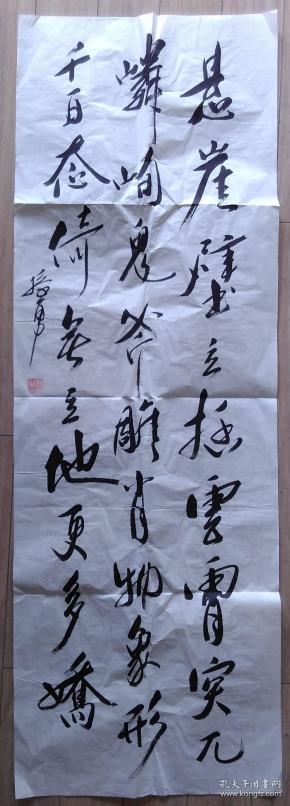 悬崖壁立插云霄突兀
嶙峋鬼斧雕肖物象形
千百态倚天立地更多娇
孔夫子旧书网
www.kongfz.com